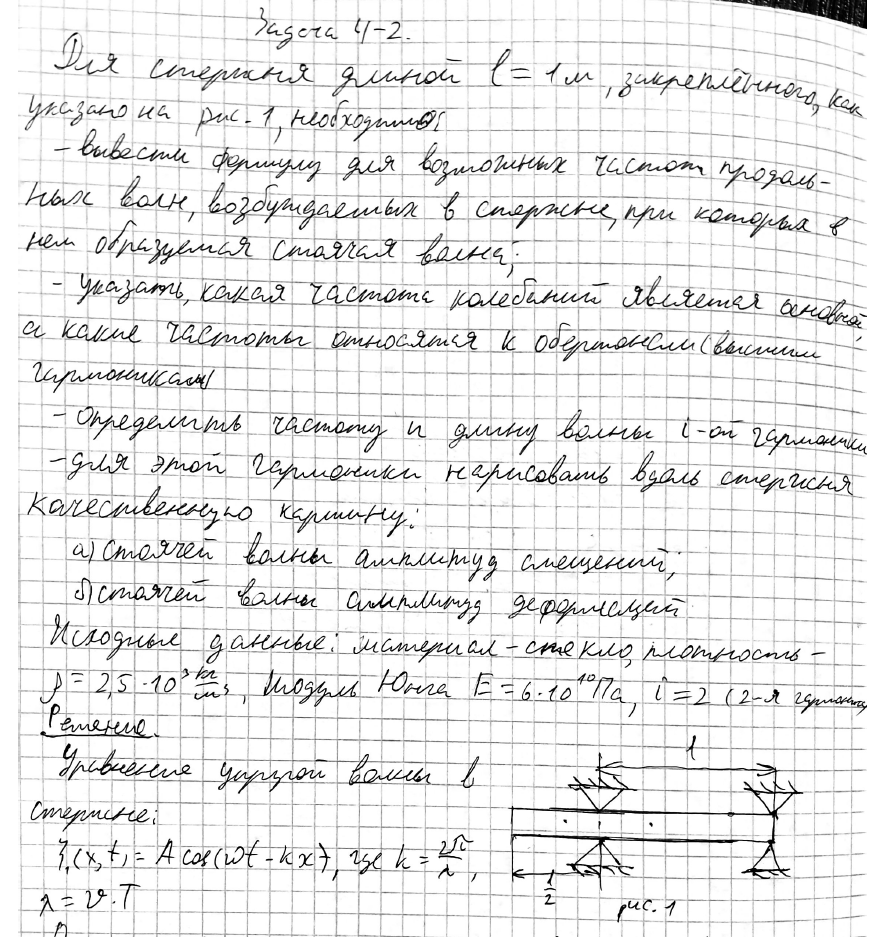 Задача 4-2.
Для стержня длиной l = 1 м, закреплённого, как
указано на рис. 1, необходимо:
- вывести формулу для возможных частот продоль-
ных волн, возбуждаемых в стержне, при которых в
нем образуемая стоячая волна;
- указать, какая частота колебаний является основной,
а какие частоты относятся к обертонам (высшим
гармоникам)
- Определить частоту и длину волны i-ой гармоники
- для этой гармоники нарисовать вдоль стержня
качественную картину:
а) стоячей волны амплитуд смещений;
б) стоячей волны амплитуд деформаций
Исходные данные: материал - стекло, плотность -
ρ = 2,5 · 10³ кг/м³, Модуль Юнга E = 6 · 10¹⁰ Па, i = 2 (2-я гармоника)
Решение.
Уравнение упругой волны в
стержне:
ξ₁(x,t) = A cos(ωt - kx), где k = 2π/λ,
λ = υ · T
l
l/2
рис. 1